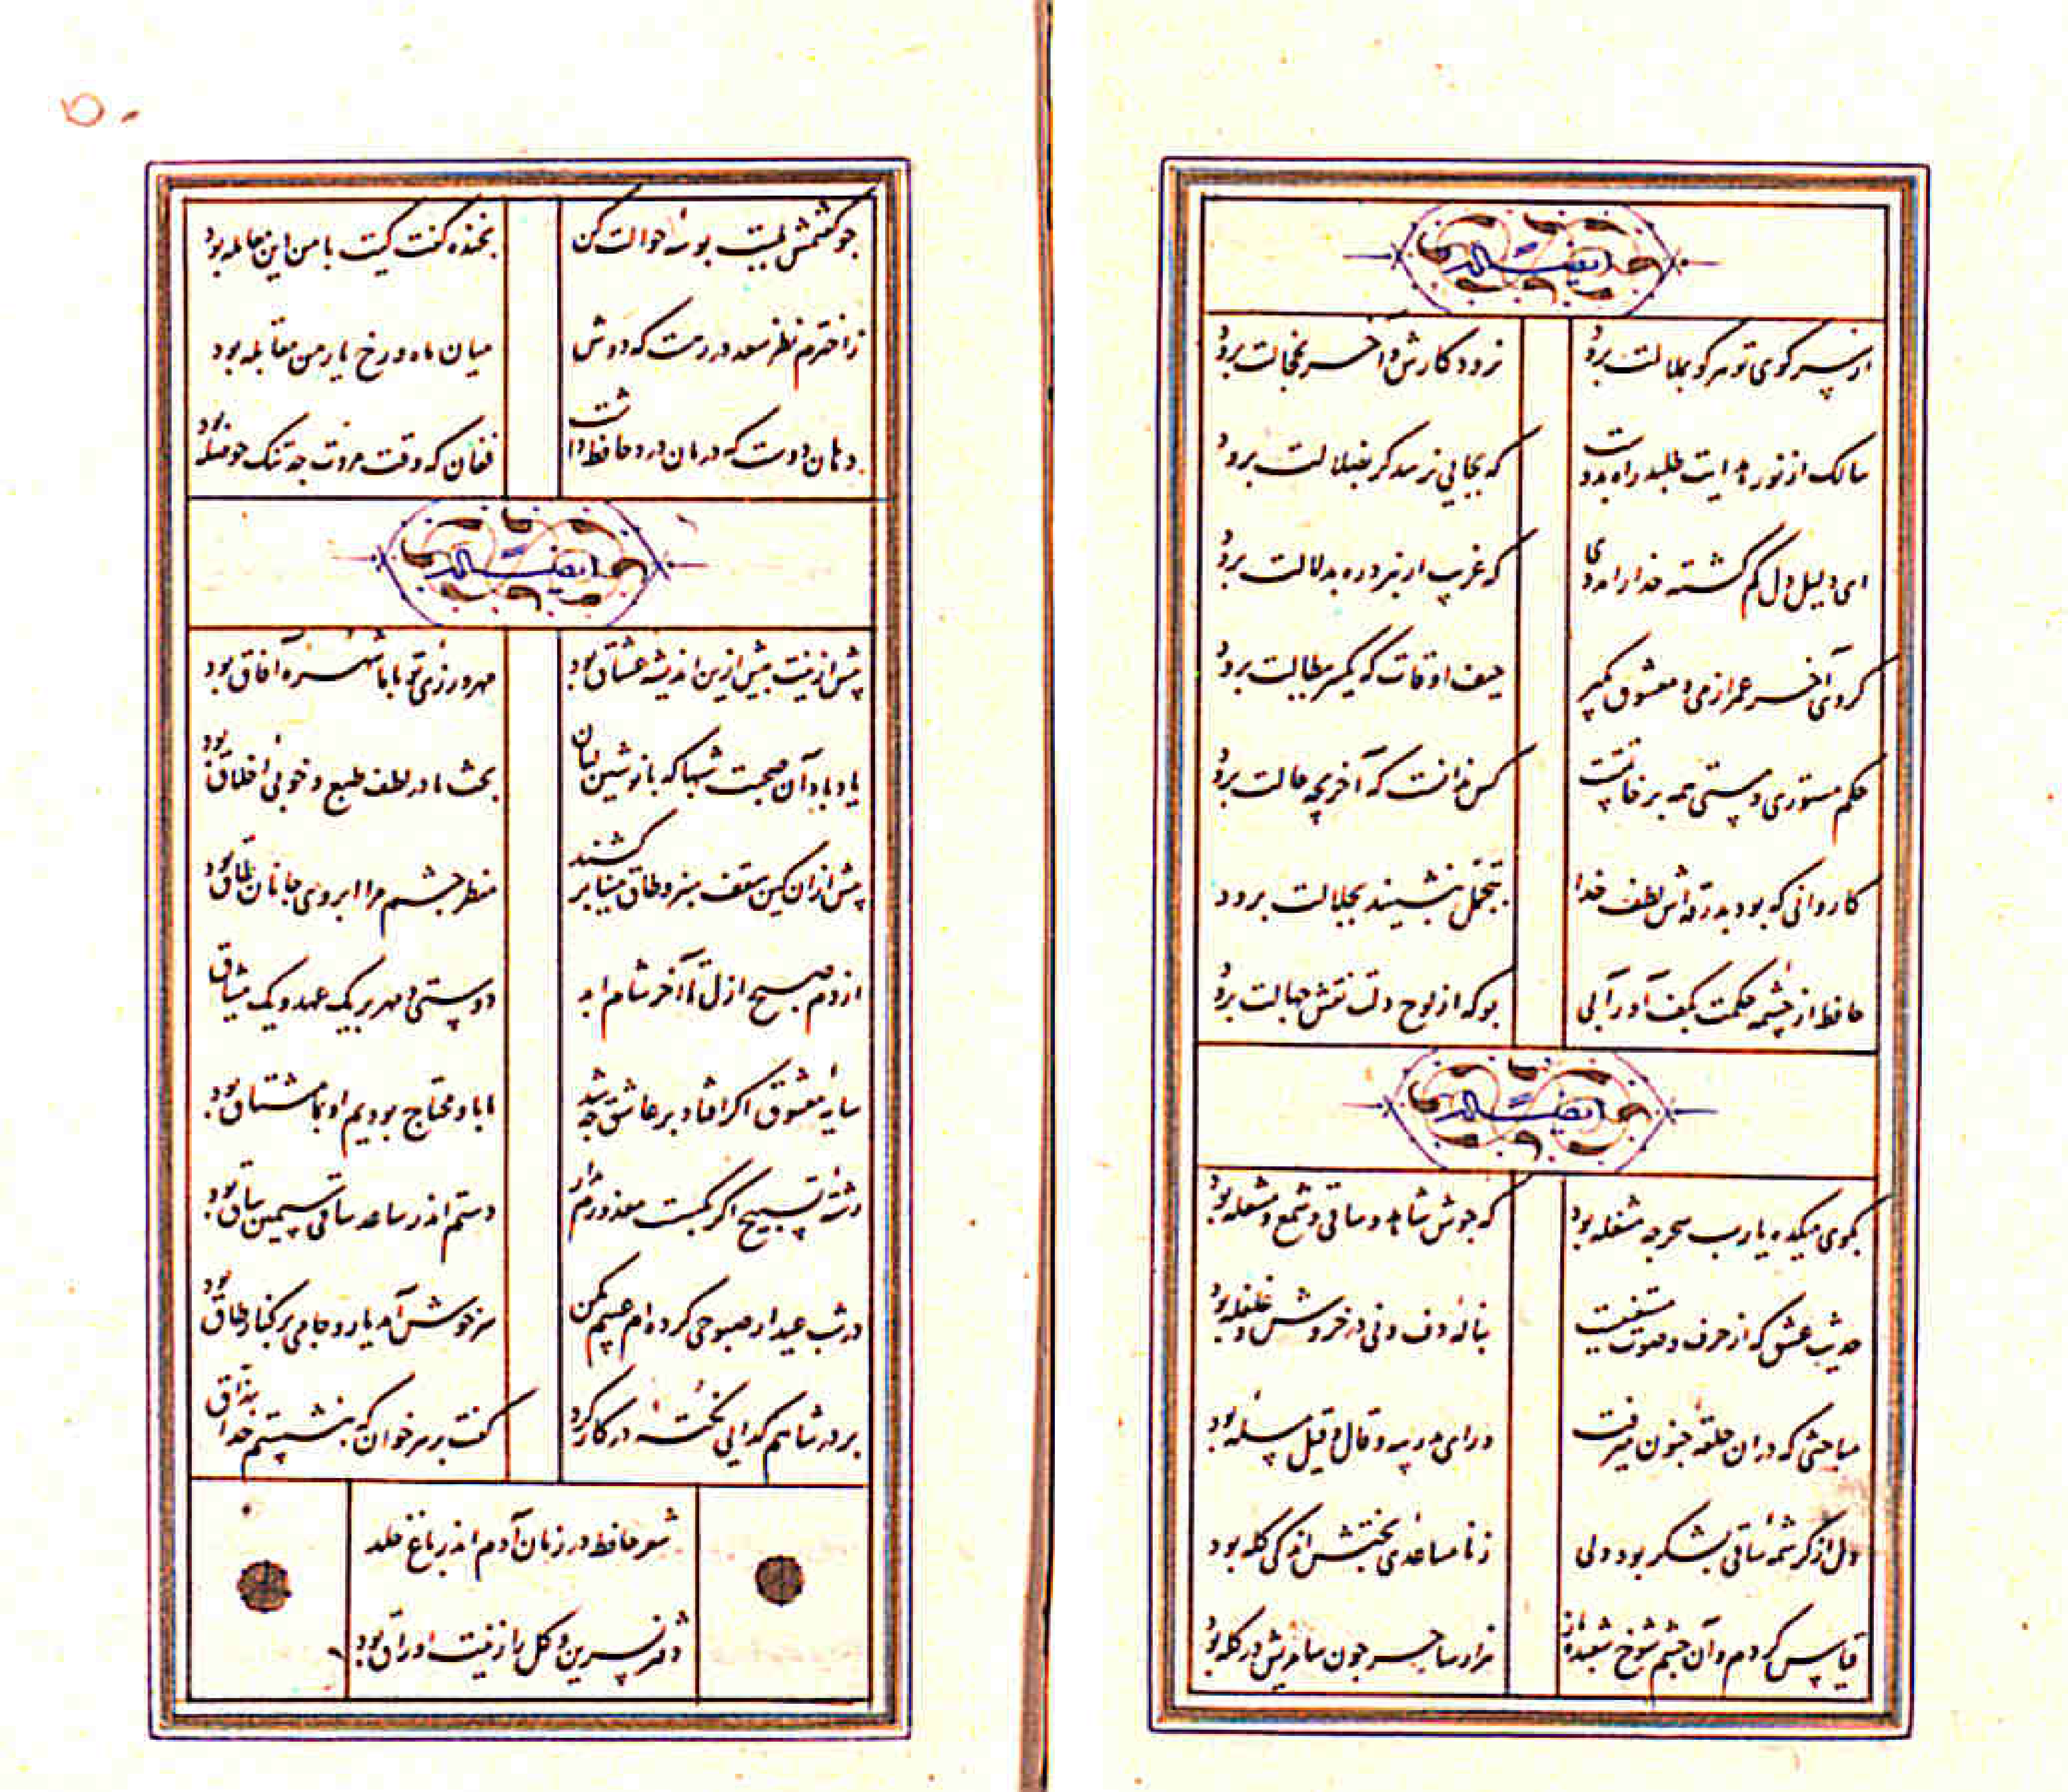 ایضاً له
از سر کوی تو هر کو بملالت برود
نرود کارش و آخر بخجالت برود
سالک از نور هدایت طلبد راه بدوست
که بجایی نرسد گر بضلالت برود
ای دلیل دل گم گشته خدا را مددی
که غریب ار نبرد ره بدلالت برود
گروی آخر عمر از می و معشوق بگیر
حیف اوقات که یکسر ببطالت برود
حکم مستوری و مستی همه بر خاتمتست
کس ندانست که آخر بچه حالت برود
کاروانی که بود بدرقه‌اش لطف خدا
بتجمل بنشیند بجلالت برود
حافظ از چشمهٔ حکمت بکف آور آبی
بو که از لوح دلت نقش جهالت برود
ایضاً له
بکوی میکده یا رب سحر چه مشغله بود
که جوش شاهد و ساقی و شمع و مشعله بود
حدیث عشق که از حرف و صوت مستغنیست
بنالهٔ دف و نی در خروش و غلغله بود
مباحثی که در آن حلقهٔ جنون میرفت
ورای مدرسه و قال و قیل مسئله بود
دل از کرشمهٔ ساقی بشکر بود ولی
ز نامساعدی بختش اندکی گله بود
قیاس کردم و آن چشم شوخ شعبده‌باز
هزار ساحر چون سامریش در گله بود
۵۰
چو گفتمش بلبت بوسهٔ حوالت کن
بخنده گفت کیت با من این معامله بود
ز اخترم نظر سعد در رهست که دوش
میان ماه و رخ یار من مقابله بود
دهان دوست که درمان درد حافظ داشت
فغان که وقت مروت چه تنگ حوصله بود
ایضاً له
پیش ازینت بیش ازین اندیشهٔ عشاق بود
مهرورزی تو با ما شهرهٔ آفاق بود
یاد باد آن صحبت شبها که با نوشین لبان
بحث ما در لطف طبع و خوبی اخلاق بود
پیش از آن کین سقف سبز و طاق مینا بر کشند
منظر چشم مرا ابروی جانان طاق بود
از دم صبح ازل تا آخر شام ابد
دوستی و مهر بر یک عهد و یک میثاق بود
سایهٔ معشوق اگر افتاد بر عاشق چه شد
ما باو محتاج بودیم او بما مشتاق بود
رشتهٔ تسبیح اگر بگسست معذورم دار
دستم اندر ساعد ساقی سیمین ساق بود
در شب عید ار صبوحی کرده‌ام عیبم مکن
سرخوش آمد یار و جامی بر کنار طاق بود
بر در شاهم گدایی نکتهٔ در کار کرد
گفت بر هر خوان که بنشستم خدا رزاق بود
شعر حافظ در زمان آدم اندر باغ خلد
دفتر نسرین و گل را زینت اوراق بود